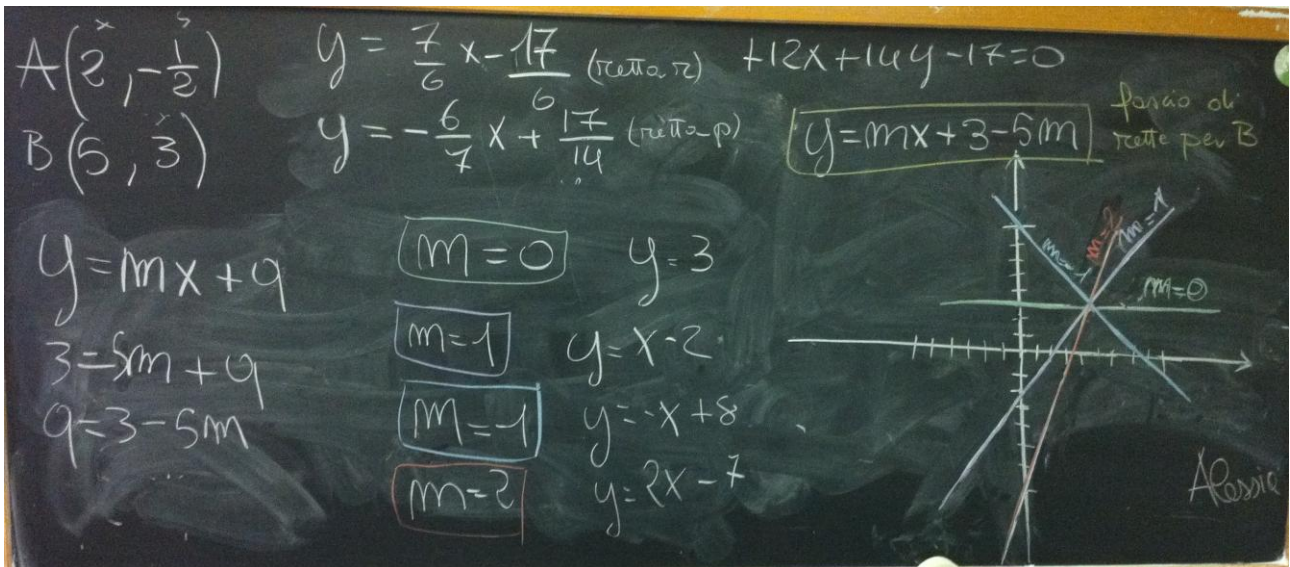 A(2, -1/2)
y = 7/6 x - 17/6 (retta r)
+12x+14y-17=0
B(5, 3)
y = -6/7 x + 17/14 (retta p)
y=mx+3-5m
fascio di
rette per B
y=mx+q
3=5m+q
q=3-5m
m=0
y=3
m=1
y=x-2
m=-1
y=-x+8
m=2
y=2x-7
m=-1
m=2
m=1
m=0
Alessia